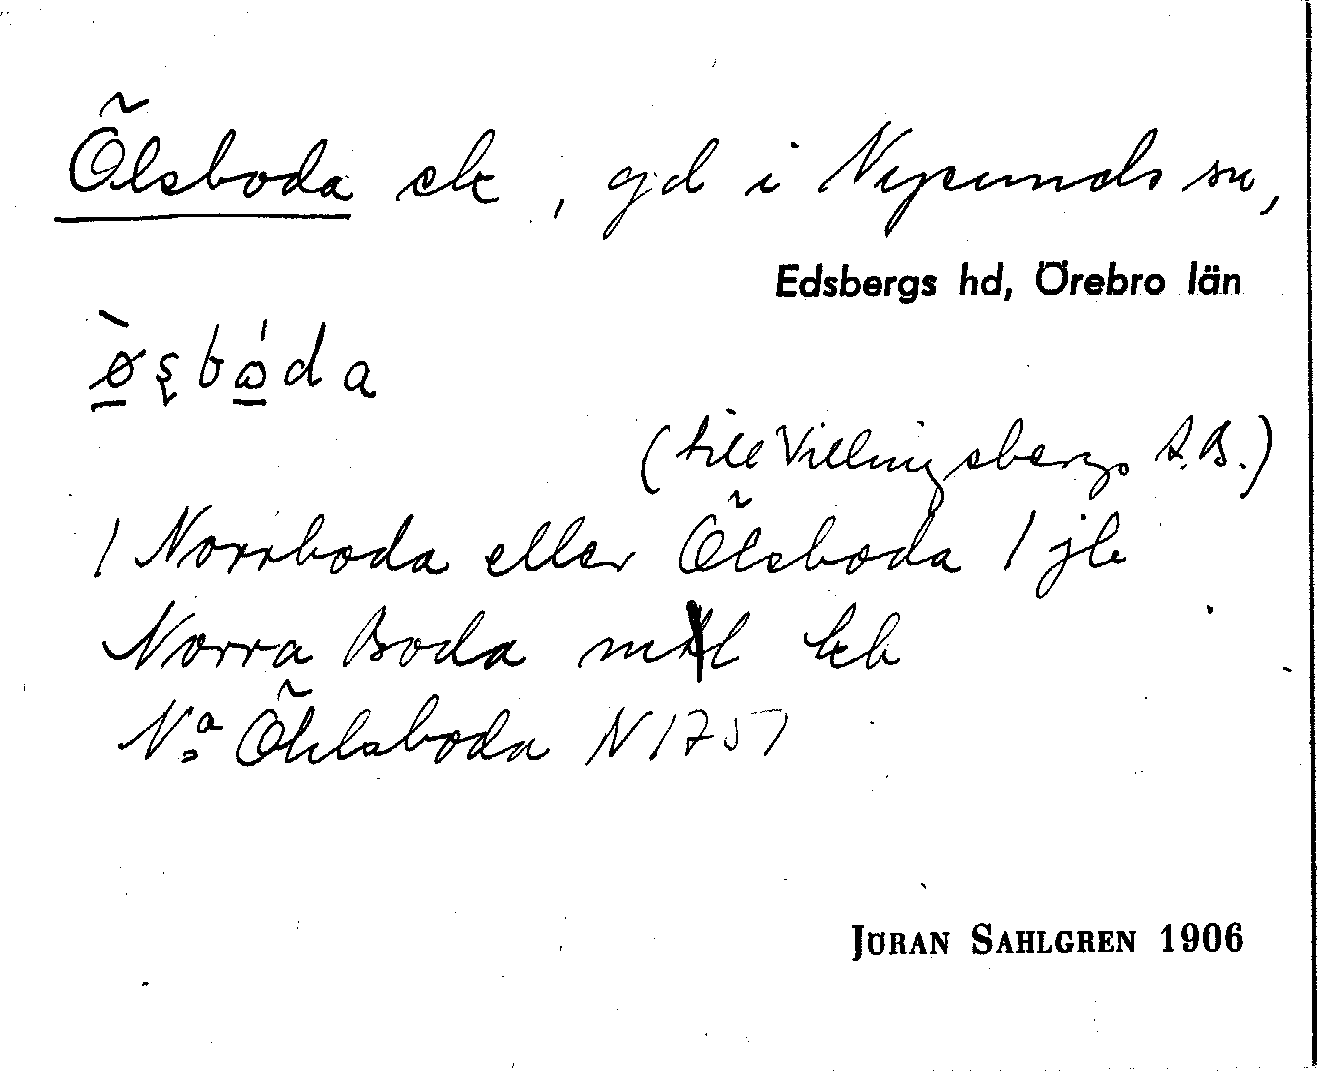 Ölsboda ek, gd i Nysunds sn,
Edsbergs hd, Örebro län
(till Villingsbergs A.B.)
1 Norrboda eller Ölsboda 1 jb
Norra Boda mtl kb
N:a Öhlsboda N 1757
JÖRAN SAHLGREN 1906